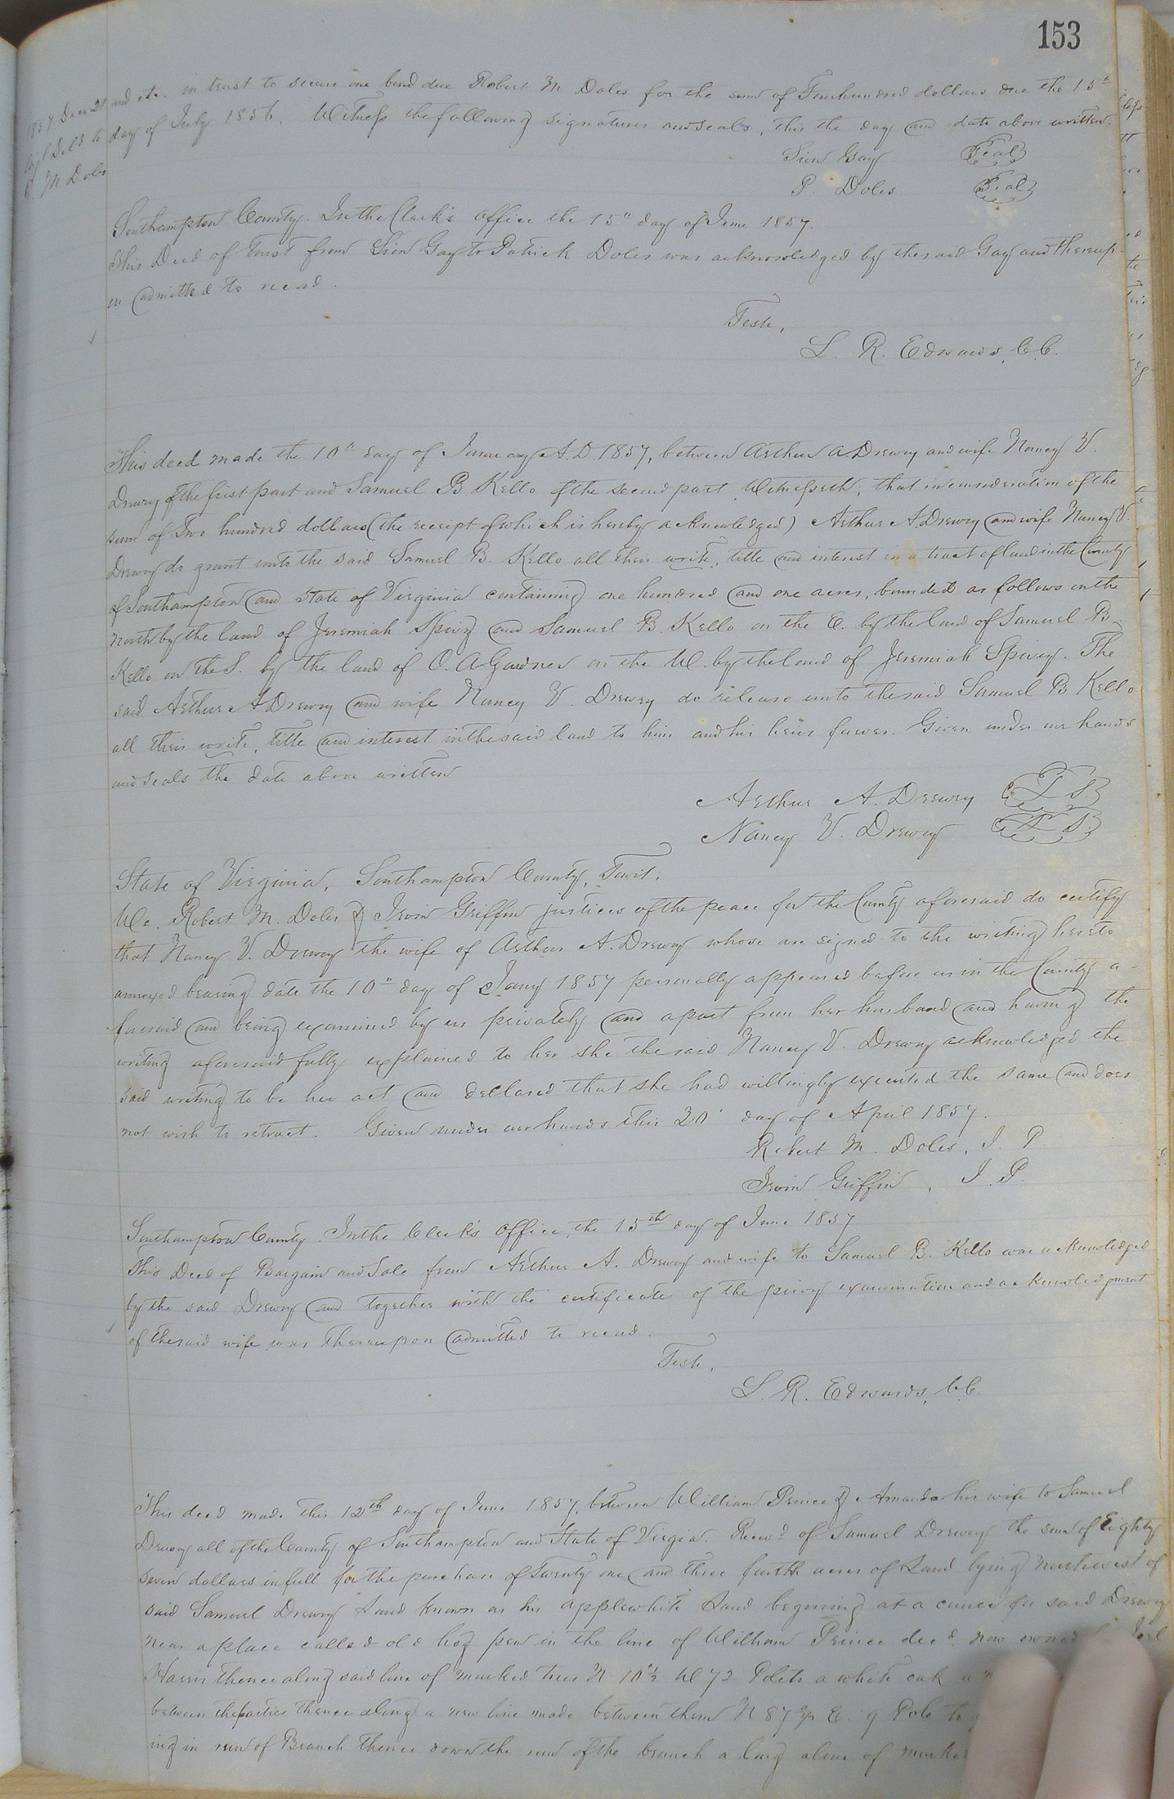 153
1857 Decr 21
R. M Doles
and etc. in trust to secure one bond due Robert M Doles for the sum of Four hundred dollars due the 15th
day of July 1856. Witness the following signatures and seals, this the day and date above written.
Sion Gay Seal
P. Doles Seal
Southampton County. In the Clerk's office the 15" day of June 1857.
This Deed of Trust from Sion Gay to Patrick Doles was acknowledged by the said Gay and thereup-
on admitted to record.
Teste,
L. R. Edwards, C.C.
This deed made the 10" day of January A.D. 1857, between Arthur A Drewry and wife Nancy V.
Drewry of the first part and Samuel B Kello of the second part, Witnesseth; that in consideration of the
sum of Two hundred dollars (the receipt of which is hereby acknowledged) Arthur A Drewry and wife Nancy V.
Drewry do grant unto the said Samuel B. Kello all their write, title and interest in a tract of land in the County
of Southampton and state of Virginia containing one hundred and one acres, bounded as follows on the
north by the land of Jeremiah Spivy and Samuel B. Kello on the E. by the land of Samuel B.
Kello on the S. by the land of O. A Gardner on the W. by the land of Jeremiah Spivey. The
said Arthur A Drewry and wife Nancy V. Drewry do release unto the said Samuel B Kello
all their write, title and interest in the said land to him and his heirs forever. Given under our hands
and seals the date above written
Arthur A. Drewry L S
Nancy V. Drewry L S
State of Virginia, Southampton County, Towit.
We. Robert M. Doles & Irvin Griffin justices of the peace for the County aforesaid do certify
that Nancy V. Drewry the wife of Arthur A. Drewry whose are signed to the writing hereto
annexed bearing date the 10" day of Jany 1857 personally appeared before us in the County a-
foresaid and being examined by us privately and apart from her husband and having the
writing aforesaid fully explained to her she the said Nancy V. Drewry acknowledged the
said writing to be her act and declared that she had willingly executed the same and does
not wish to retract. Given under our hands this 20' day of April 1857.
Robert M. Doles, J. P
Irvin Griffin, J. P.
Southampton County. In the Clerk's office, the 15th day of June 1857
This Deed of Bargain and Sale from Arthur A. Drewry and wife to Samuel B. Kello was acknowledged
by the said Drewry and together with the certificate of the privy examination and acknowledgment
of the said wife was thereupon admitted to record.
Teste,
L. R. Edwards, C.C.
This deed made this 12th day of June 1857, between William Prince & Amanda his wife to Samuel
Drewry all of the County of Southampton and State of Virgia. Recvd of Samuel Drewry the sum of Eighty
seven dollars in full for the purchase of Twenty one and three fourth acres of Land lying northwest of
said Samuel Drewry Land known as his applewhite Land begining at a corner for said Drewry
near a place called old hog pen in the line of William Prince decd. now owned
Harris thence along said line of marked trees N 10½ W 72 Poles to a white oak a
between the parties thence along a new line made between them N 87 E. 9 Pole to
ing in run of Branch thence down the run of the branch a long a line of marke